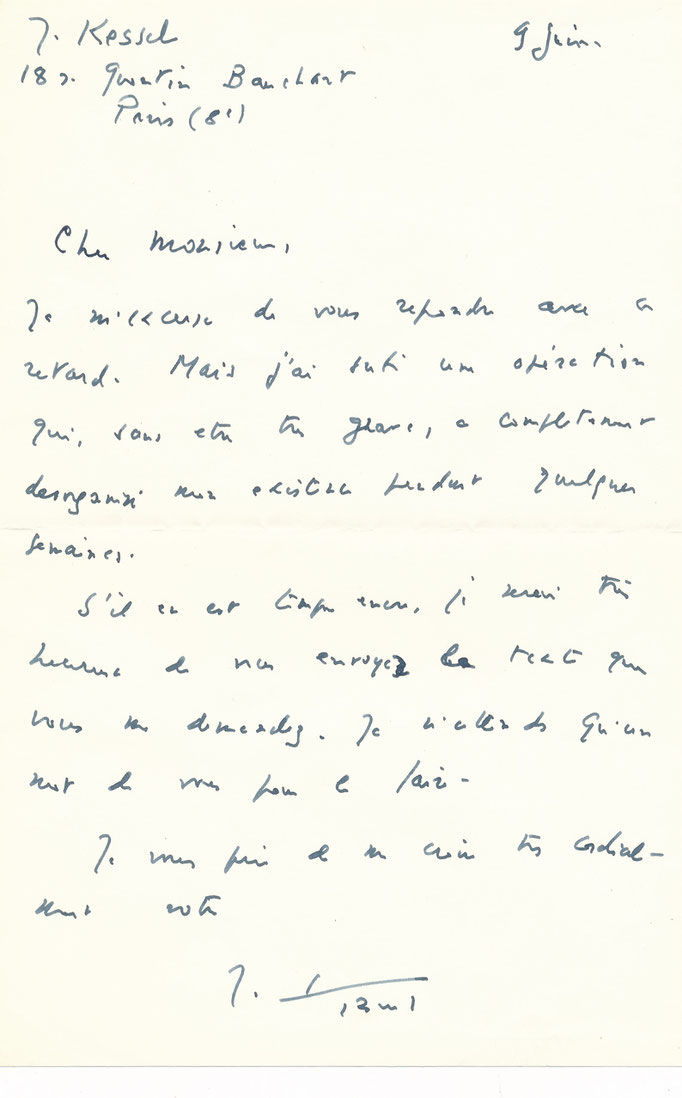 J. Kessel
9 Juin.
18 r. Quentin Bauchart
Paris (8e)
Cher Monsieur,
Je m'excuse de vous repondre avec ce
retard. Mais j'ai subi une opération
qui, sans etre très grave, a completement
desorganisé mon existence pendant quelques
semaines.
S'il en est temps encore, je serais très
heureux de vous envoyez le texte que
vous me demandez. Je n'attends qu'un
mot de vous pour le faire -
Je vous prie de me croire très cordial-
ement votre
J. Kessel